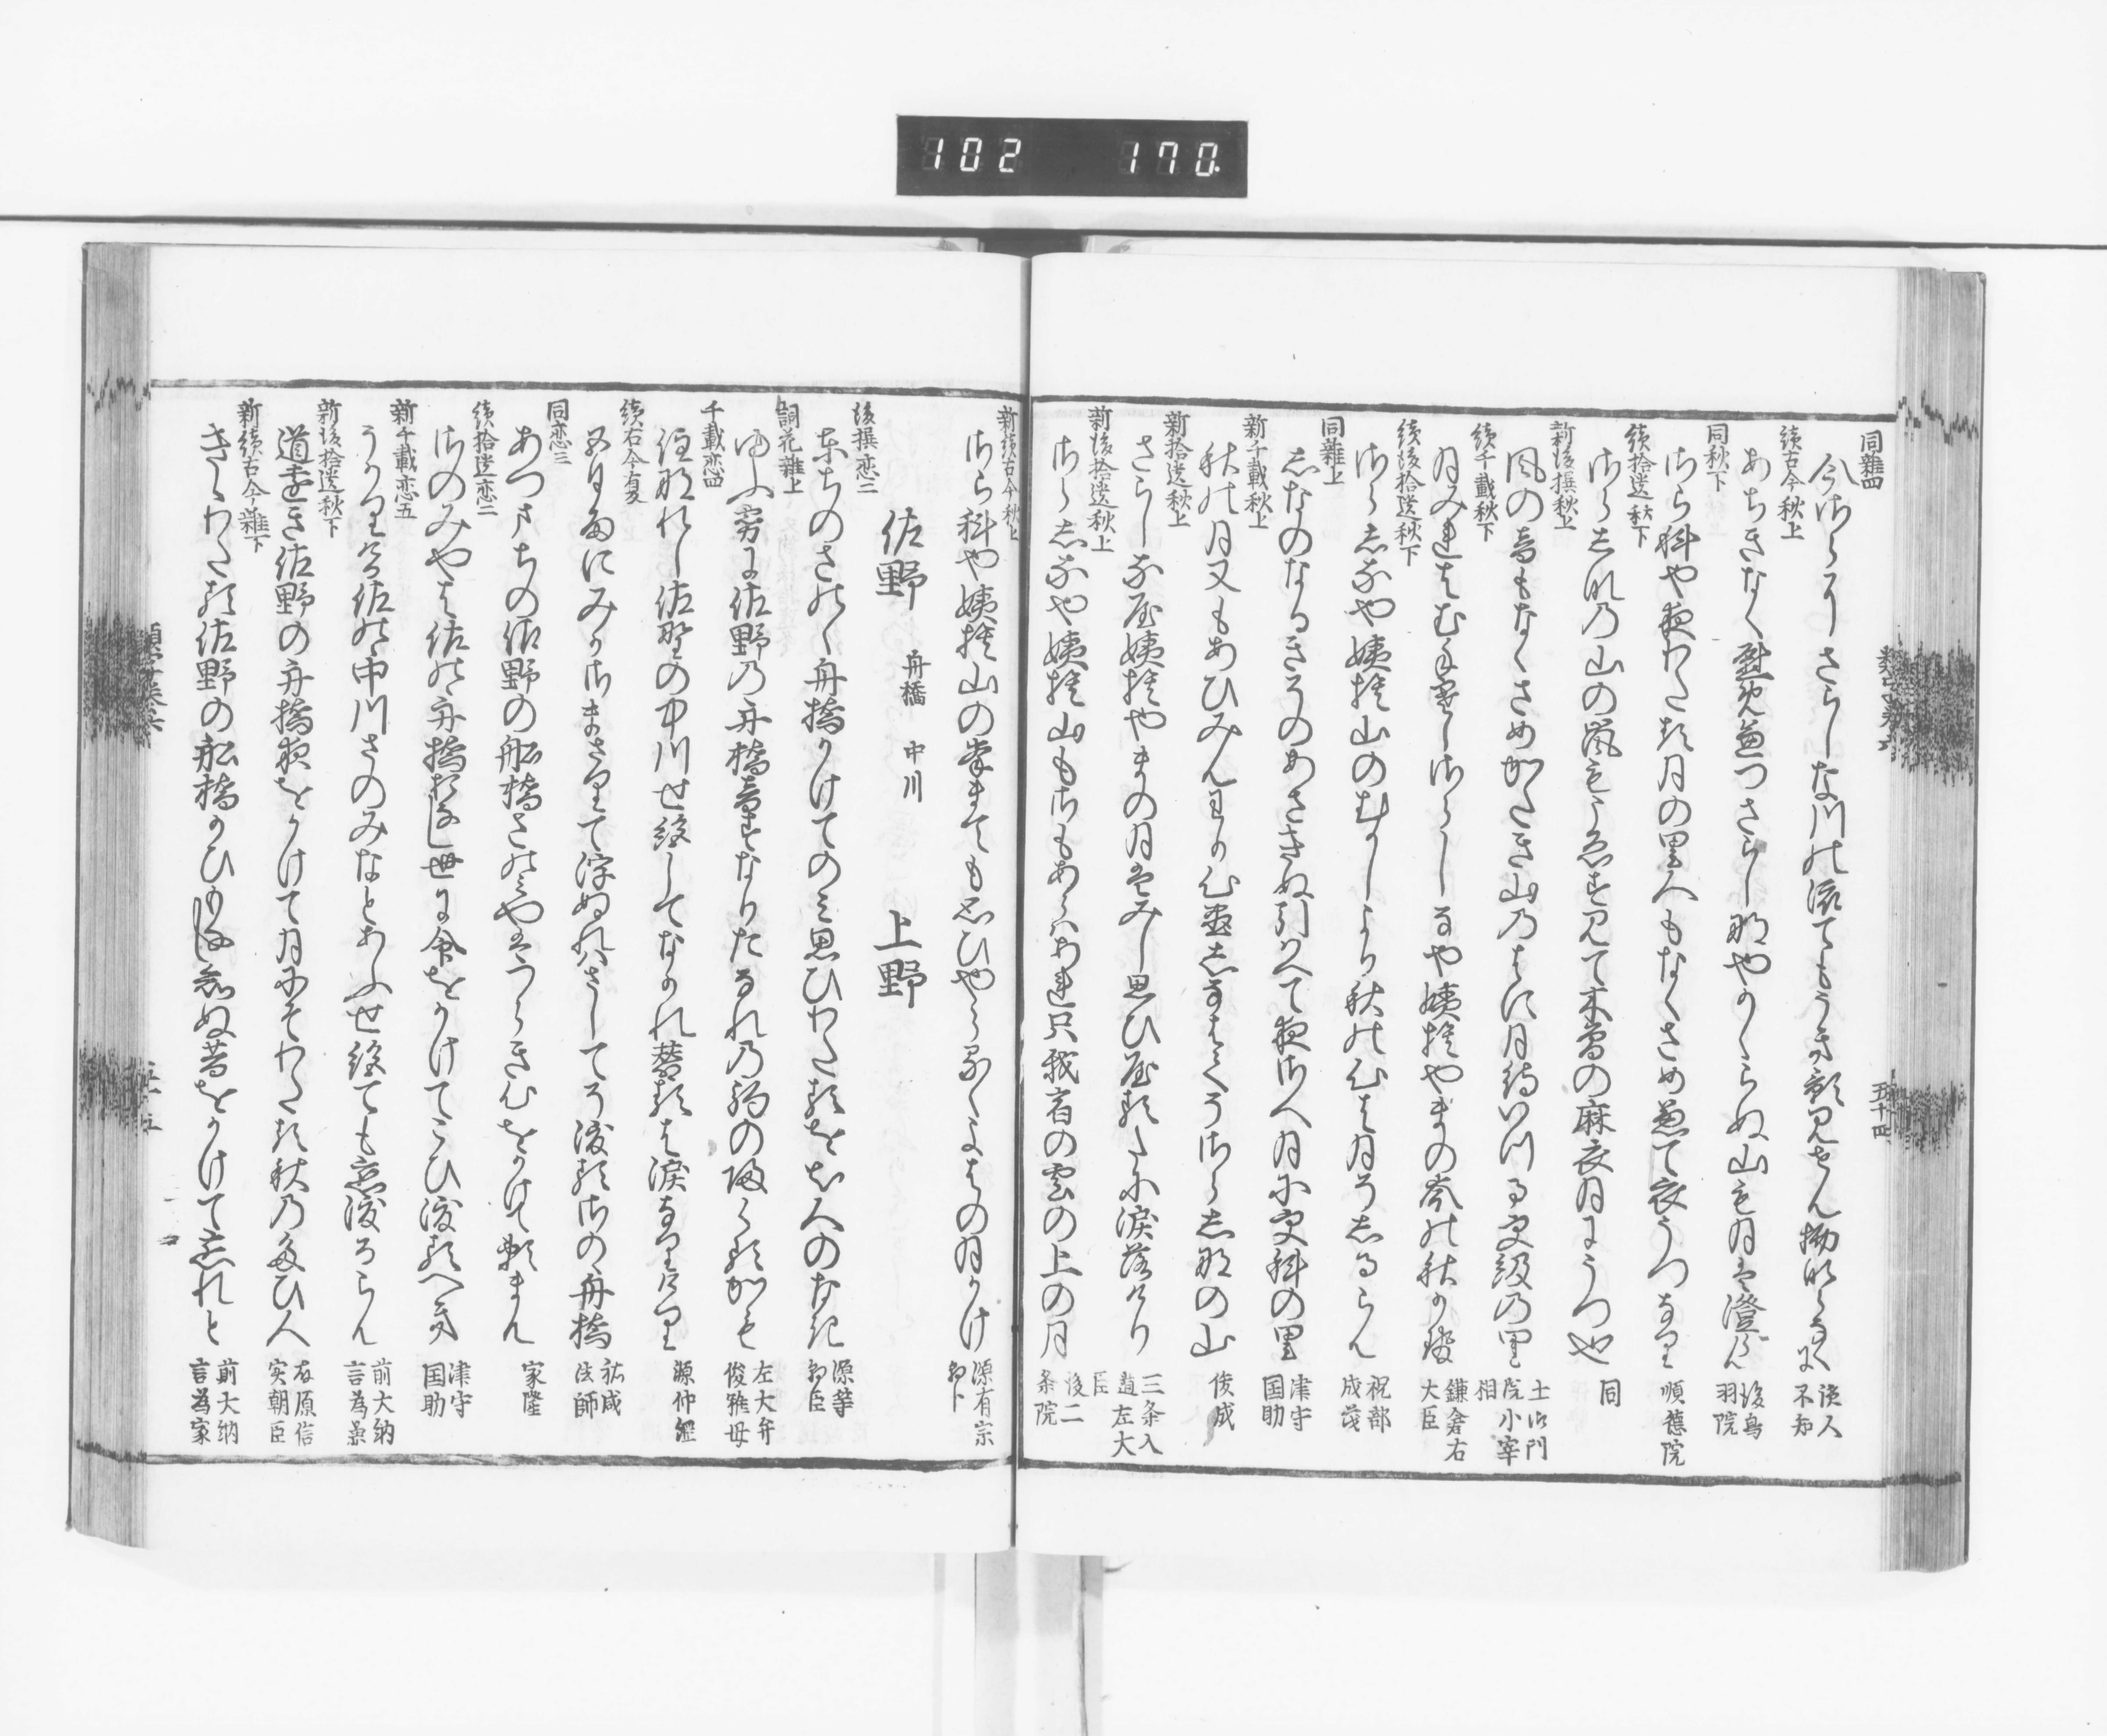 102 170
同雑四
今さらにさらしな川の流てもうき影見せん物ならなくに 読人不知
続古今秋上
あちきなく慰め兼つさらしなやかゝらぬ山も月は澄らん 後鳥羽院
同秋下
さら科や夜わたる月の里人もなくさめ兼て衣うつなり 順徳院
続拾遺秋下
さらしなの山の嵐も声すみて木曽の麻衣月にうつ也 同
新後撰秋上
風の音もなくさめかたき山のはに月待いつる更級の里 土御門院小宰相
続千載秋下
月みれは
さらしなや姨捨やまの峯の秋かせ 鎌倉右大臣
続後拾遺秋下
さらしなや姨捨山のむかしより秋の心は月そしるらん 祝部成茂
同雑上
しなのなるきそのあさきぬ引かへて夜さへ月に更科の里 津守国助
新千載秋上
秋の月又もあひみんわか心盡しなはてそさらしなの山 俊成
新拾遺秋上
さらしな屋姨捨やまの月はみし思ひ屋るたに涙落けり 三条入道左大臣
新後拾遺秋上
さらしなや姨捨山もさもあらはあれ只我宿の雲の上の月 後二条院
五十四
新続古今秋上
さら科や姨捨山の峯まても思ひやらるゝよはの月かけ 源有宗朝卜
佐野 舟橋 中川 上野
後撰恋二
東ちのさのゝ舟橋かけてのみ思ひわたるをしる人のなき 源等朝臣
詞花雑上
ゆふ霧に佐野の舟橋音すなりたなれの駒の帰りくるかも 左大弁俊雅母
千載恋四
佐野の中川せ絶してなかれ替るは涙なりけり 源仲綱
続古今夏
五月雨にみかさまさりて浮ぬれはさしてそ渡るさのゝ舟橋 祐盛法師
同恋三
あつまちの佐野の船橋さのみやはつらき心をかけて頼まん 家隆
続拾遺恋二
さのみやは佐の舟橋おなし世に命をかけてこひ渡るへき 津守国助
新千載恋五
うかりける佐の中川さのみなとあふせ絶ても恋渡るらん 前大納言為氏
新後拾遺秋下
道遠き佐野の舟橋夜をかけて月にそわたる秋のたひ人 藤原信実朝臣
新続古今雑下
きゝわたる佐野の船橋かひもなし知ぬ昔をかけて恋れと 前大納言為家